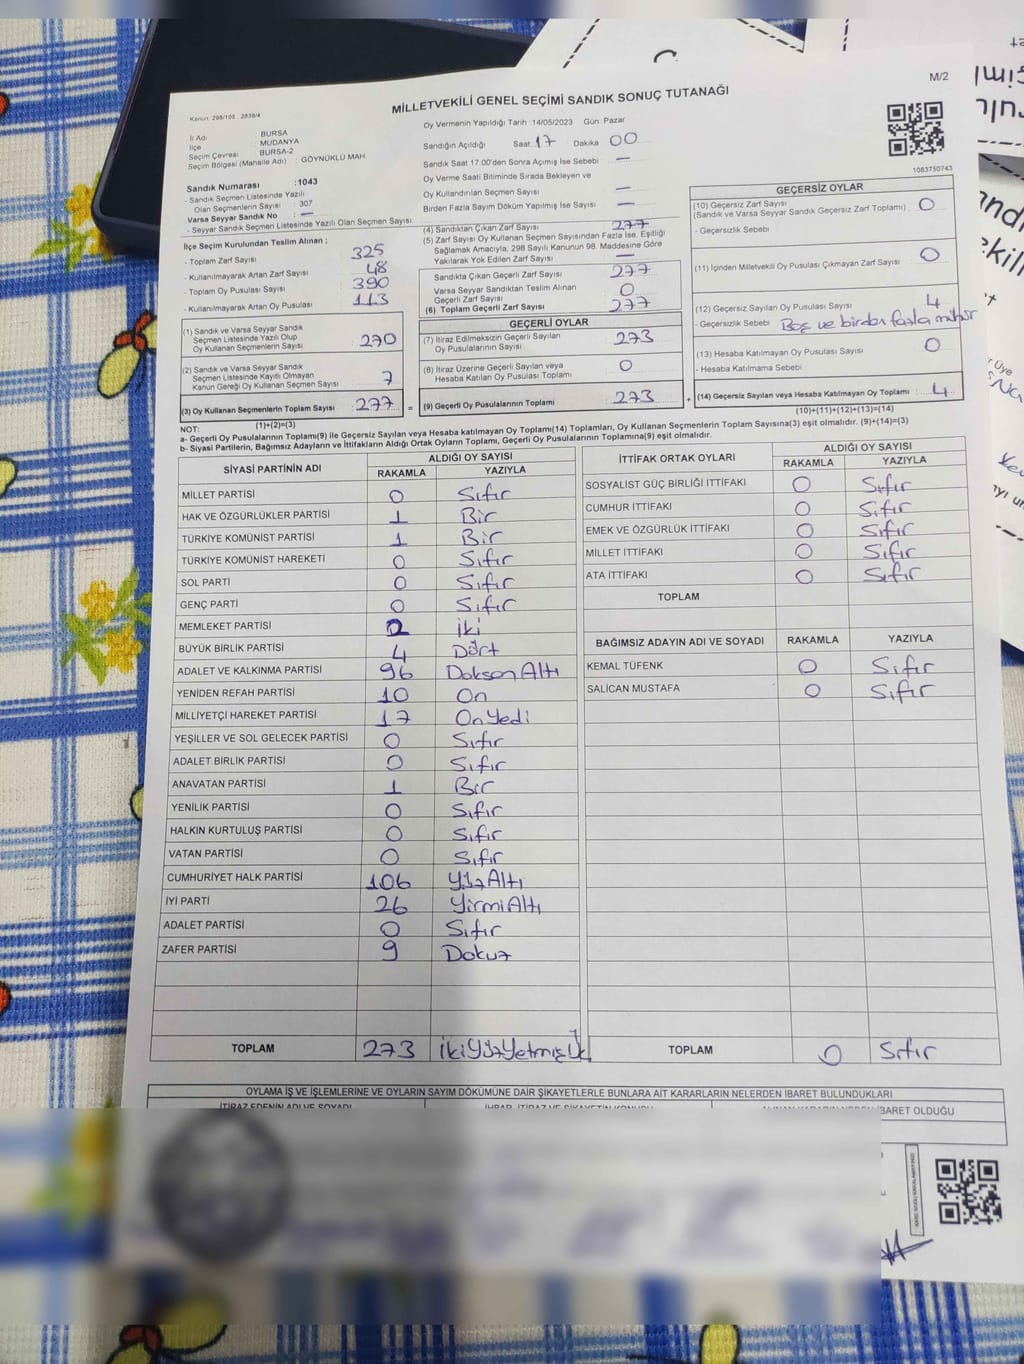 M/2
MİLLETVEKİLİ GENEL SEÇİMİ SANDIK SONUÇ TUTANAĞI
Kanun: 298/105 , 2839/4
İl Adı BURSA
İlçe MUDANYA
Seçim Çevresi BURSA-2
Seçim Bölgesi (Mahalle Adı) : GÖYNÜKLÜ MAH
Sandık Numarası :1043
- Sandık Seçmen Listesinde Yazılı
Olan Seçmenlerin Sayısı : 307
Varsa Seyyar Sandık No : —
- Seyyar Sandık Seçmen Listesinde Yazılı Olan Seçmen Sayısı:
Oy Vermenin Yapıldığı Tarih : 14/05/2023 Gün: Pazar
Sandığın Açıldığı Saat 17 Dakika 00
Sandık Saat 17:00'den Sonra Açımış İse Sebebi —
Oy Verme Saati Bitiminde Sırada Bekleyen ve
Oy Kullandırılan Seçmen Sayısı —
Birden Fazla Sayım Döküm Yapılmış İse Sayısı —
1083750743
İlçe Seçim Kurulundan Teslim Alınan ;
- Toplam Zarf Sayısı 325
- Kullanılmayarak Artan Zarf Sayısı 48
- Toplam Oy Pusulası Sayısı 390
- Kullanılmayarak Artan Oy Pusulası 113
(1) Sandık ve Varsa Seyyar Sandık
Seçmen Listesinde Yazılı Olup
Oy Kullanan Seçmenlerin Sayısı : 270
(2) Sandık ve Varsa Seyyar Sandık
Seçmen Listesinde Kayıtlı Olmayan
Kanun Gereği Oy Kullanan Seçmen Sayısı : 7
(3) Oy Kullanan Seçmenlerin Toplam Sayısı : 277
(1)+(2)=(3)
(4) Sandıktan Çıkan Zarf Sayısı 277
(5) Zarf Sayısı Oy Kullanan Seçmen Sayısından Fazla İse, Eşitliği
Sağlamak Amacıyla, 298 Sayılı Kanunun 98. Maddesine Göre
Yakılarak Yok Edilen Zarf Sayısı —
Sandıkta Çıkan Geçerli Zarf Sayısı 277
Varsa Seyyar Sandıktan Teslim Alınan
Geçerli Zarf Sayısı 0
(6) Toplam Geçerli Zarf Sayısı 277
GEÇERLİ OYLAR
(7) İtiraz Edilmeksizin Geçerli Sayılan
Oy Pusulalarının Sayısı 273
(8) İtiraz Üzerine Geçerli Sayılan veya
Hesaba Katılan Oy Pusulası Toplamı 0
= (9) Geçerli Oy Pusulalarının Toplamı 273
GEÇERSİZ OYLAR
(10) Geçersiz Zarf Sayısı 0
(Sandık ve Varsa Seyyar Sandık Geçersiz Zarf Toplamı)
- Geçersizlik Sebebi
(11) İçinden Milletvekili Oy Pusulası Çıkmayan Zarf Sayısı 0
(12) Geçersiz Sayılan Oy Pusulası Sayısı 4
- Geçersizlik Sebebi Boş ve birden fazla mühür
(13) Hesaba Katılmayan Oy Pusulası Sayısı 0
- Hesaba Katılmama Sebebi
+ (14) Geçersiz Sayılan veya Hesaba Katılmayan Oy Toplamı : 4
(10)+(11)+(12)+(13)=(14)
NOT:
a- Geçerli Oy Pusulalarının Toplamı(9) ile Geçersiz Sayılan veya Hesaba katılmayan Oy Toplamı(14) Toplamları, Oy Kullanan Seçmenlerin Toplam Sayısına(3) eşit olmalıdır. (9)+(14)=(3)
b- Siyasi Partilerin, Bağımsız Adayların ve İttifakların Aldığı Ortak Oyların Toplamı, Geçerli Oy Pusulalarının Toplamına(9) eşit olmalıdır.
SİYASİ PARTİNİN ADI ALDIĞI OY SAYISI
RAKAMLA YAZIYLA
MİLLET PARTİSİ 0 Sıfır
HAK VE ÖZGÜRLÜKLER PARTİSİ 1 Bir
TÜRKİYE KOMÜNİST PARTİSİ 1 Bir
TÜRKİYE KOMÜNİST HAREKETİ 0 Sıfır
SOL PARTİ 0 Sıfır
GENÇ PARTİ 0 Sıfır
MEMLEKET PARTİSİ 2 İki
BÜYÜK BİRLİK PARTİSİ 4 Dört
ADALET VE KALKINMA PARTİSİ 96 Doksan Altı
YENİDEN REFAH PARTİSİ 10 On
MİLLİYETÇİ HAREKET PARTİSİ 17 On Yedi
YEŞİLLER VE SOL GELECEK PARTİSİ 0 Sıfır
ADALET BİRLİK PARTİSİ 0 Sıfır
ANAVATAN PARTİSİ 1 Bir
YENİLİK PARTİSİ 0 Sıfır
HALKIN KURTULUŞ PARTİSİ 0 Sıfır
VATAN PARTİSİ 0 Sıfır
CUMHURİYET HALK PARTİSİ 106 Yüz Altı
İYİ PARTİ 26 Yirmi Altı
ADALET PARTİSİ 0 Sıfır
ZAFER PARTİSİ 9 Dokuz
TOPLAM 273 İki Yüz Yetmiş Üç
İTTİFAK ORTAK OYLARI ALDIĞI OY SAYISI
RAKAMLA YAZIYLA
SOSYALİST GÜÇ BİRLİĞİ İTTİFAKI 0 Sıfır
CUMHUR İTTİFAKI 0 Sıfır
EMEK VE ÖZGÜRLÜK İTTİFAKI 0 Sıfır
MİLLET İTTİFAKI 0 Sıfır
ATA İTTİFAKI 0 Sıfır
TOPLAM
BAĞIMSIZ ADAYIN ADI VE SOYADI RAKAMLA YAZIYLA
KEMAL TÜFENK 0 Sıfır
SALİCAN MUSTAFA 0 Sıfır
TOPLAM 0 Sıfır
OYLAMA İŞ VE İŞLEMLERİNE VE OYLARIN SAYIM DÖKÜMÜNE DAİR ŞİKAYETLERLE BUNLARA AİT KARARLARIN NELERDEN İBARET BULUNDUKLARI
İTİRAZ EDENİN ADI VE SOYADI
İBARET OLDUĞU